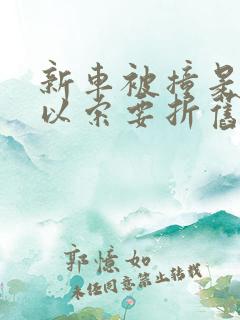 新車被撞是
以索要折舊
郭憶如
未经同意禁止转载